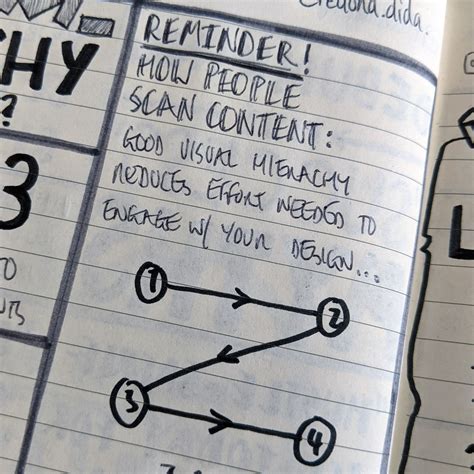 HY
?
3
TO
REMINDER!
HOW PEOPLE
SCAN CONTENT:
GOOD VISUAL HIERACHY
REDUCES EFFORT NEEDED TO
ENGAGE W/ YOUR DESIGN...
1
2
3
4
L